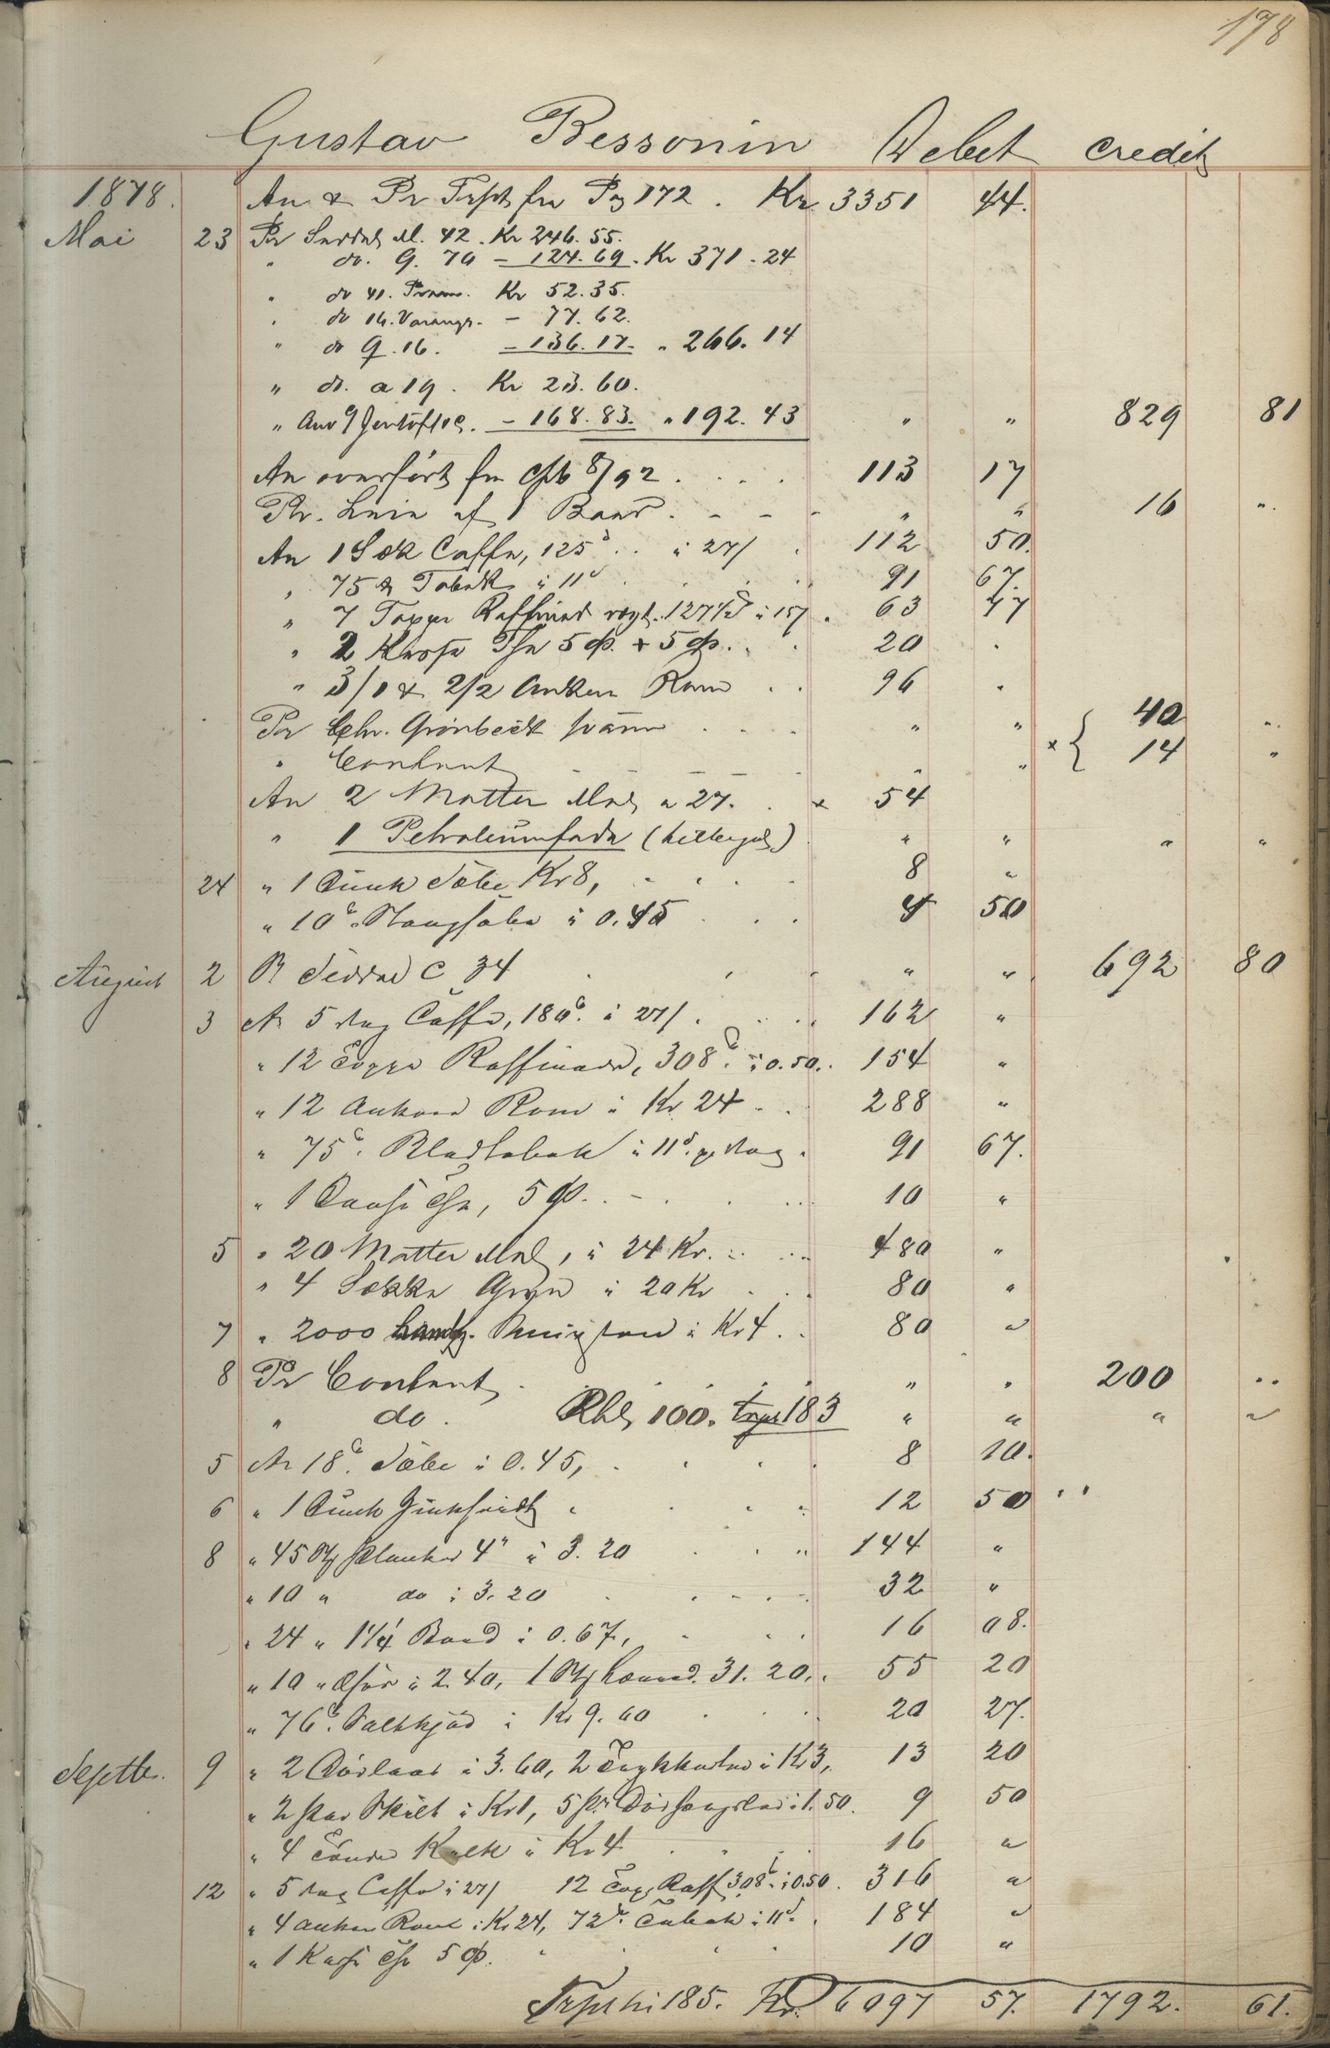 178
Gustav Bessonin Debet Credit
1878. An & Pr Trspt fra Pag 172 . Kr 3351 44.
Mai 23 Pr Seddel M. 42 . Kr 246. 55.
" do. G. 70 - 124. 69. Kr 371 . 24
" do 41. Kr 52. 35.
" do 14. Varangr. - 77. 62.
" do G. 16. - 136. 17. " 266. 14
" do. a 19 . Kr 23. 60.
" Anv - 168. 83. " 192. 43 " " 829 81
An overført fra 8/92 . . . . 113 17
Pr. Leie af 1 Baad . - - - " " 16 "
An 1 Sæk Caffe, 125 . . à 27/ . 112 50.
" 75 Tobak à 11 . . . . 91 67.
" 7 Toppe Raffinad vegt. 127 à 15/ . 63 47
" 2 Kasse The 5 + 5 . . . 20 "
" 3/1 & 2/2 Anker Rom . . 96 "
Pr Chr. Grönbech . . . . " " x { 40 "
" Contant - - - - " " 14 "
An 2 Matter Mel a 27. . x 54
" 1 Petroleumfade () " " " "
24 " 1 Dunk Sæbe Kr 8, - . . . 8 "
" 10 Stangsæbe à 0.45 . . . 4 50
August 2 Pr Seddel C 34 . . . " " 692 80
3 An 5 Vog Caffe, 180. à 27/ . . . . 162 "
" 12 Toppe Raffinade, 308 . à 0.50. . 154 "
" 12 Ankere Rom à Kr 24 . . 288 "
" 75 . Bladtobak à 11 . pr Vog . 91 67.
" 1 Kasse The, 5 . . - . . . 10 "
5 " 20 Matter Mel, à 24 Kr. . . . . 480 "
" 4 Sække Gryn à 20 Kr . . . 80 "
7 " 2000 Mursten à Kr 4. . 80 "
8 Pr Contant . . . . . . " " 200 "
" do . Rbl 100. Trspt 183 " " " "
5 An 18 . Sæbe à 0.45, . . . . 8 10.
6 " 1 Dunk Zinkhvidt . . . . 12 50
8 " 45 Planker 4" à 3. 20 . . . 144 "
" 10 " do à 3. 20 . . . . 32 "
" 24 " 1 1/4 Bord à 0.67, . . . 16 08.
" 10 " à 2.40, 1 31. 20. . 55 20
" 76 . Saltkjöd à Kr 9. 60 . . . . 20 27.
Septbr. 9 " 2 Dörlaas à 3. 60, 2 à Kr 3, 13 20
" 2 par Skilt à Kr 1, 5 pr Dörhængsler à 1.50. 9 50
" 4 Tönder Kalk à Kr 4 . . . 16 "
12 " 5 Vog Caffe à 27/ 12 Top. Raff 308 à 0.50. 316 "
" 4 anker Rom à Kr 24, 72 . Tobak à 11 . . 184 "
" 1 Kasse The 5 . . . . 10 "
Trspt til 185. Kr. 6097 57. 1792. 61.